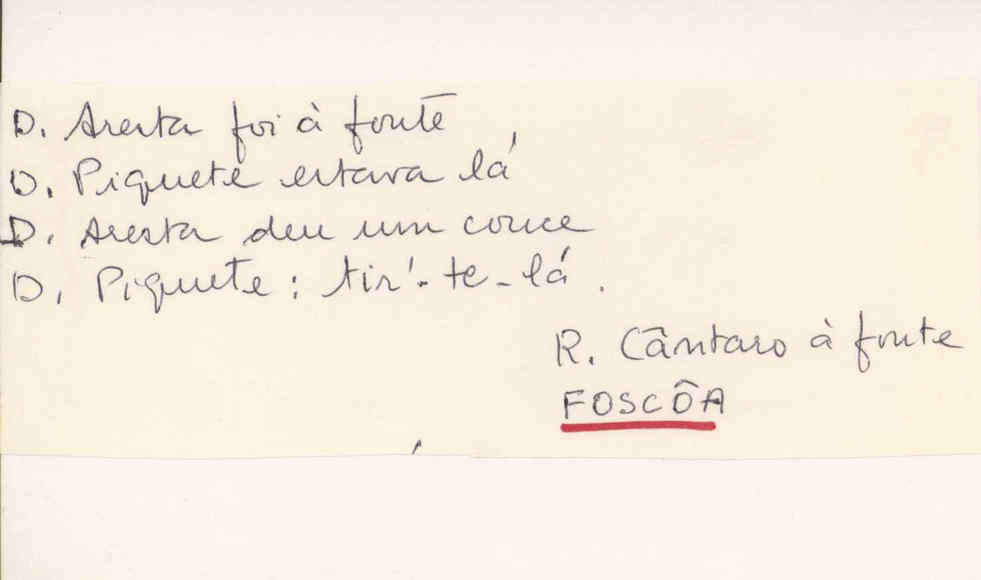 D. Aresta foi à fonte
D. Piquete estava lá
D. Aresta deu um couce
D. Piquete: tir'-te-lá.
R. Cântaro à fonte
FOSCÔA